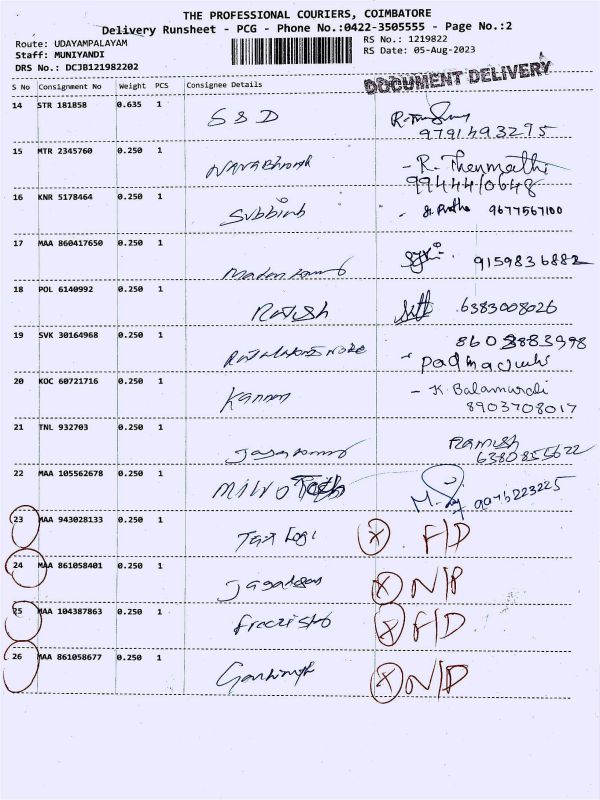 THE PROFESSIONAL COURIERS, COIMBATORE
Delivery Runsheet - PCG - Phone No.:0422-3505555 - Page No.:2
Route: UDAYAMPALAYAM RS No.: 1219822
Staff: MUNIYANDI RS Date: 05-Aug-2023
DRS No.: DCJB121982202
DOCUMENT DELIVERY
S No Consignment No Weight PCS Consignee Details
14 STR 181858 0.635 1 S & D
9791493295
15 MTR 2345760 0.250 1 R. Thenmathi
9944410648
16 KNR 5178464 0.250 1 9677567100
17 MAA 860417650 0.250 1 9159836882
18 POL 6140992 0.250 1 Ratish 6383008026
19 SVK 30164968 0.250 1
20 KOC 60721716 0.250 1 Kannan K. Balamurali
8903708017
21 TNL 932703 0.250 1 Ramesh
6380855622
22 MAA 105562678 0.250 1
23 MAA 943028133 0.250 1 Tax Logi X F/D
24 MAA 861058401 0.250 1 X N/P
25 MAA 104387863 0.250 1 X F/D
26 MAA 861058677 0.250 1 X N/D